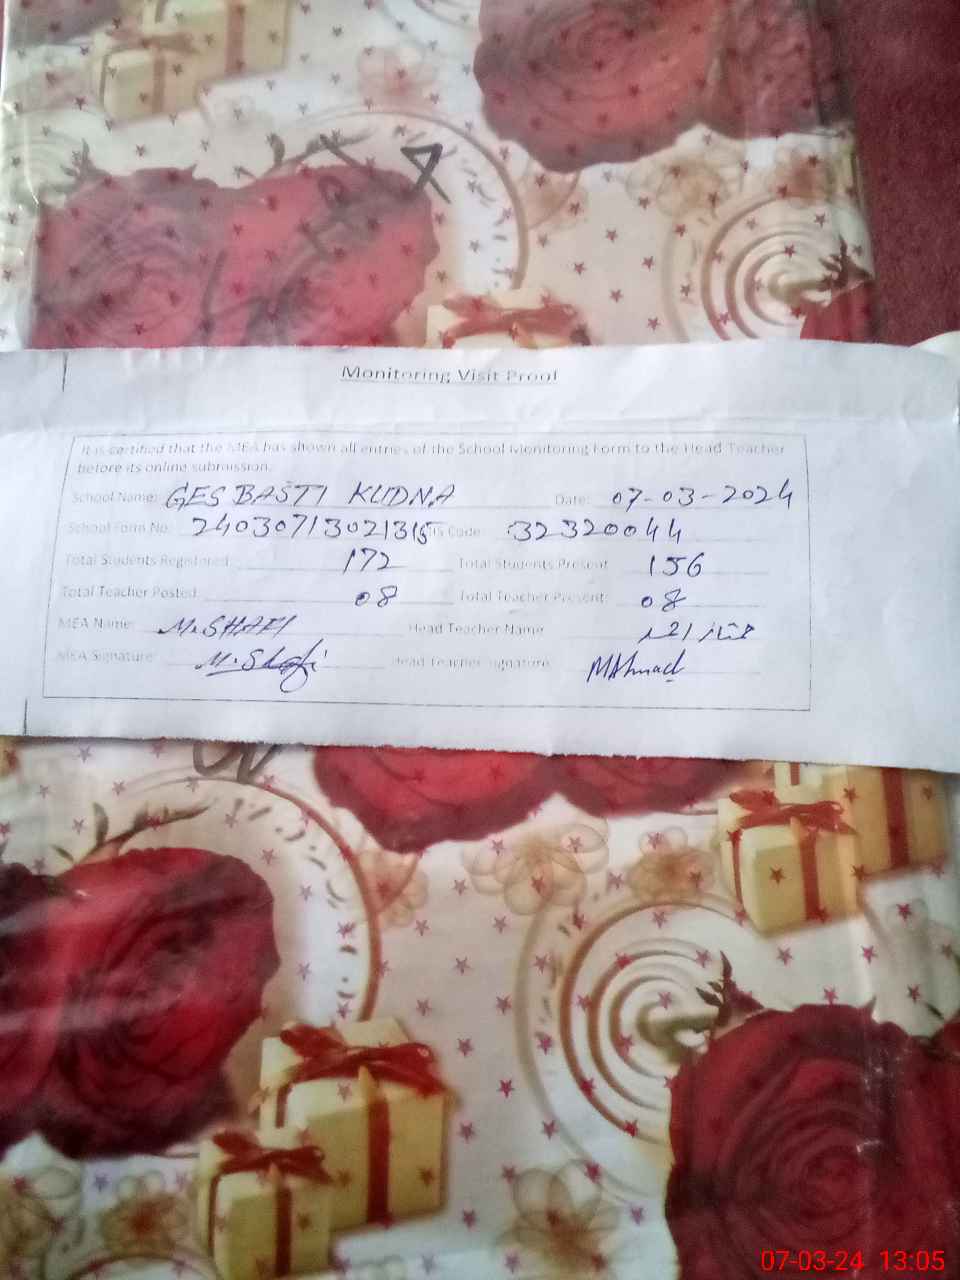 Monitoring Visit Proof
It is certified that the MEA has shown all entries of the School Monitoring Form to the Head Teacher
before its online submission.
School Name: GES BASTI KUDNA Date: 07-03-2024
School Form No: 24030713021315 Code: 32320044
Total Students Registered: 172 Total Students Present 156
Total Teacher Posted: 08 Total Teacher Present: 08
MEA Name: M. SHAFI Head Teacher Name
MEA Signature: M. Shafi Head Teacher Signature MAhmad
07-03-24 13:05